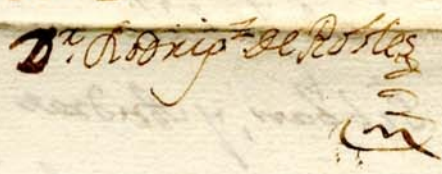 Dr. Rodrigz de Robles